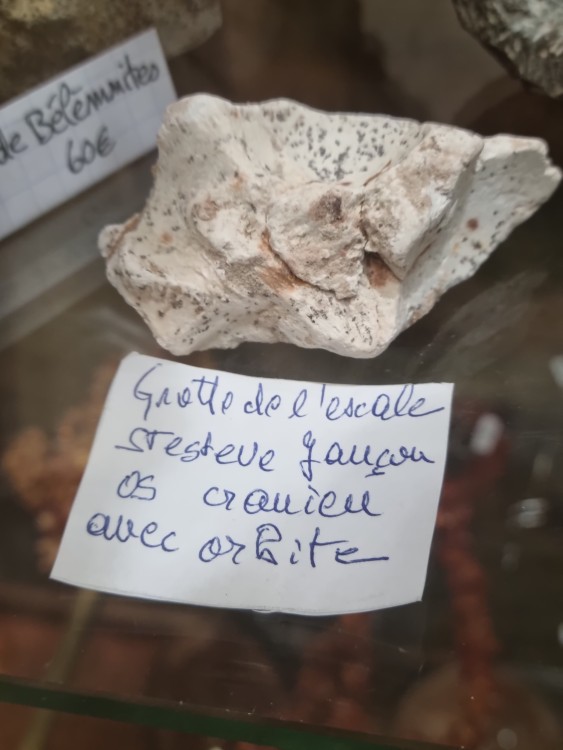 de Bélemnites
60€
Grotte de l'escale
st esteve Jançon
os cranien
avec orbite